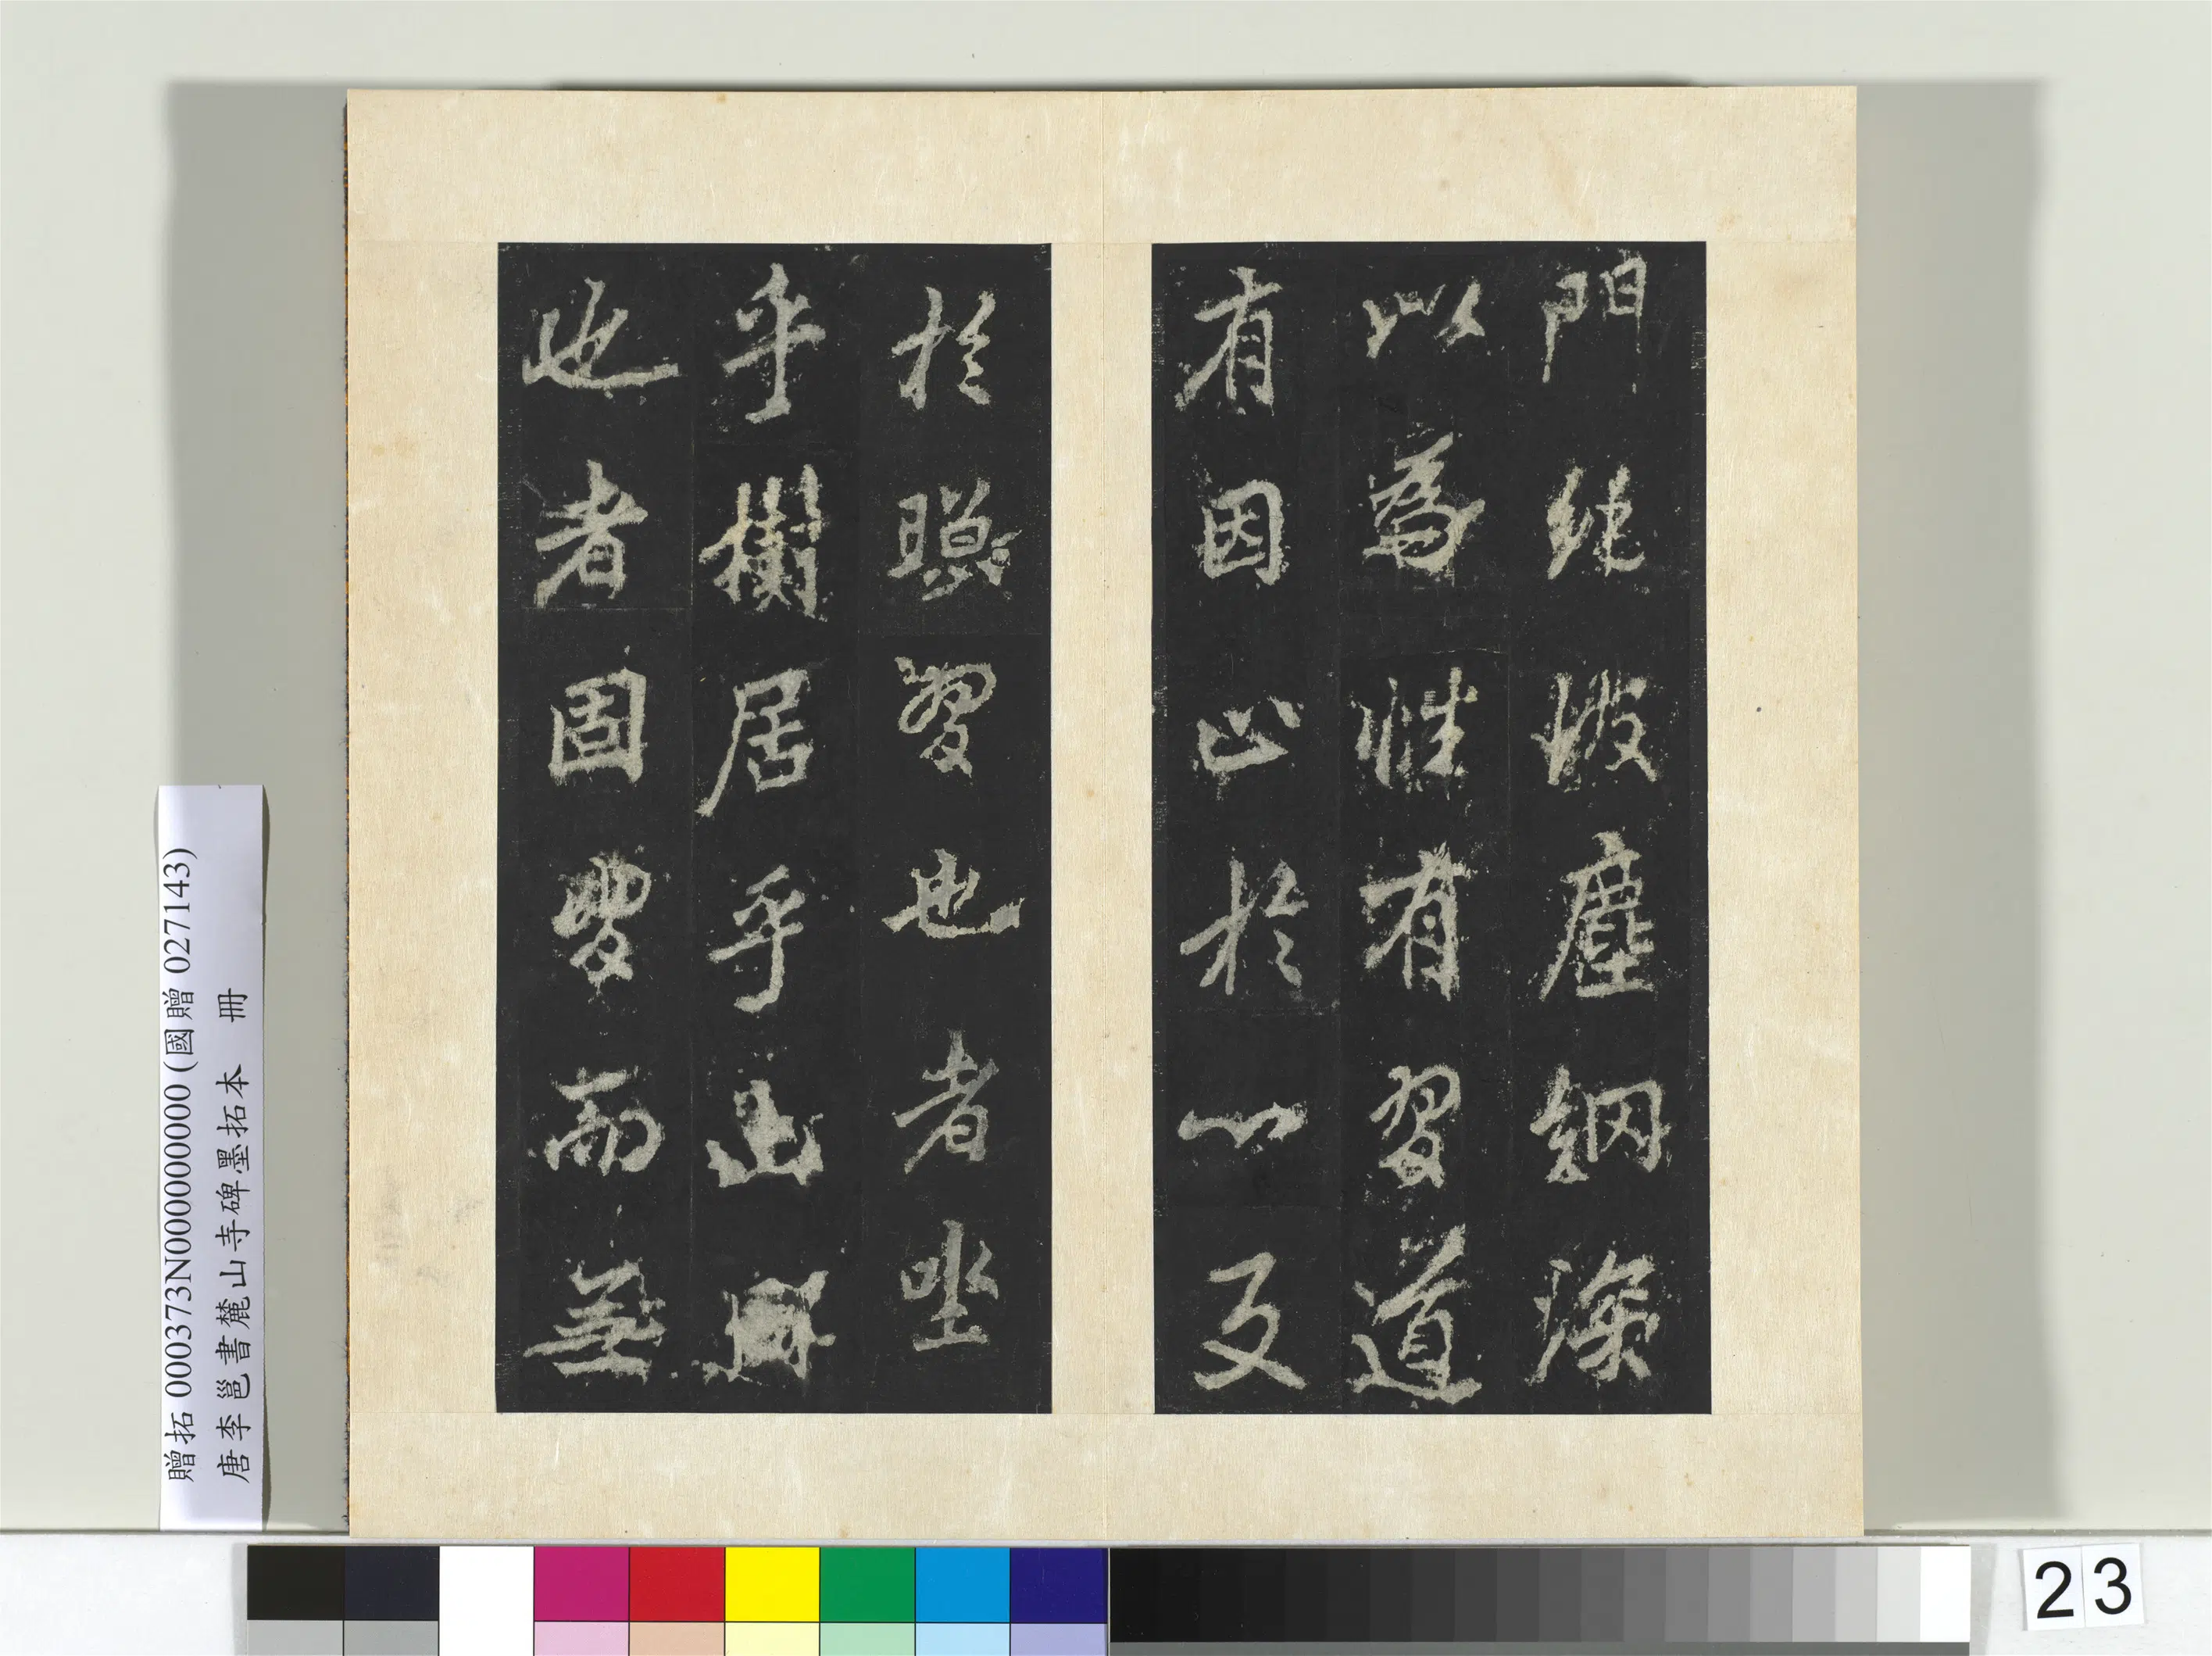 門彼塵網深
以為性有習道
有因止於心反
於習也者坐
乎樹居乎山興
也者固而無
贈拓 000373N000000000 (國贈 027143)
唐李邕書麓山寺碑墨拓本 冊
23